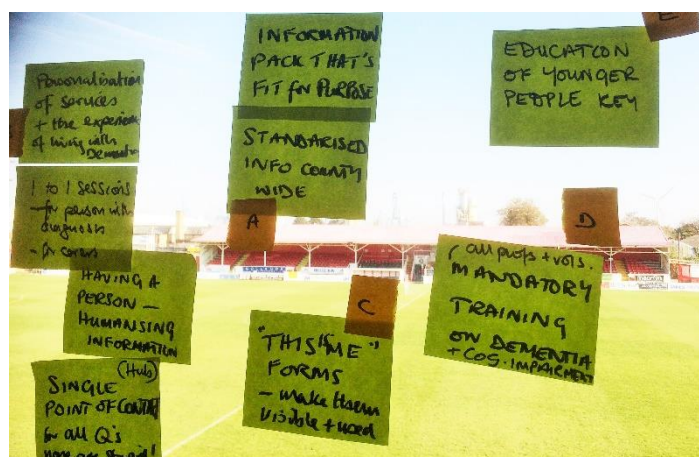 Personalisation
of services
+ the experience
of living with
Dementia
1 to 1 sessions
- for person with
diagnosis
- for carers
HAVING A
PERSON -
HUMANISING
INFORMATION
(Hub)
SINGLE
POINT OF CONTACT
for all Q's
INFORMATION
PACK THAT'S
FIT for PURPOSE
STANDARISED
INFO COUNTY
WIDE
A
C
"THIS IS ME"
FORMS
- make them
visible + used
E
EDUCATION
OF YOUNGER
PEOPLE KEY
D
(all profs + vols.
MANDATORY
TRAINING
ON DEMENTIA
+ COG. IMPAIRMENT